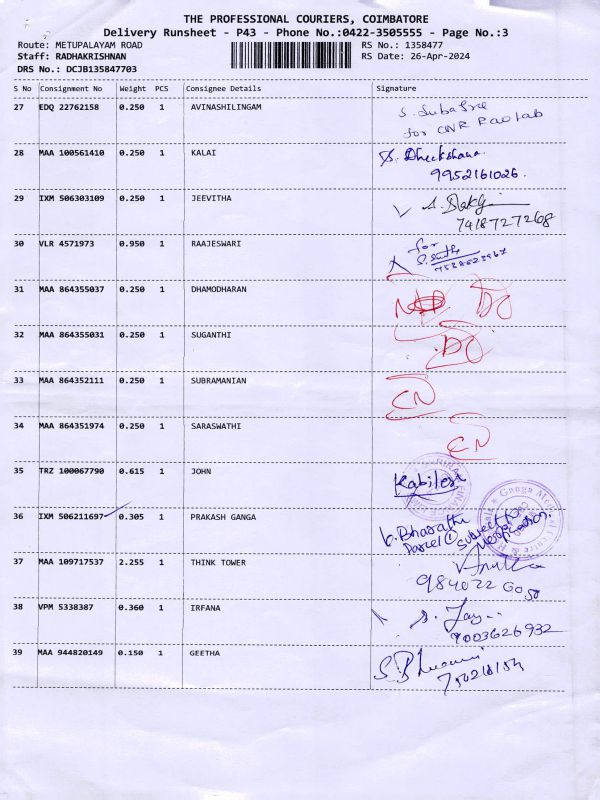 THE PROFESSIONAL COURIERS, COIMBATORE
Delivery Runsheet - P43 - Phone No.:0422-3505555 - Page No.:3
Route: METUPALAYAM ROAD RS No.: 1358477
Staff: RADHAKRISHNAN RS Date: 26-Apr-2024
DRS No.: DCJB135847703
S No Consignment No Weight PCS Consignee Details Signature
27 EDQ 22762158 0.250 1 AVINASHILINGAM S. Subasree
for CNR Rao lab
28 MAA 100561410 0.250 1 KALAI S. Dheekshana.
9952161026.
29 IXM 506303109 0.250 1 JEEVITHA
7418727268
30 VLR 4571973 0.950 1 RAAJESWARI for
31 MAA 864355037 0.250 1 DHAMODHARAN DC
32 MAA 864355031 0.250 1 SUGANTHI DC
33 MAA 864352111 0.250 1 SUBRAMANIAN CN
34 MAA 864351974 0.250 1 SARASWATHI CN
35 TRZ 100067790 0.615 1 JOHN Kabilesh
36 IXM 506211697 0.305 1 PRAKASH GANGA G. Bharathi
Parcel ① Subject to
Verification.
37 MAA 109717537 2.255 1 THINK TOWER
38 VPM 5338387 0.360 1 IRFANA S. Jay
9003626932
39 MAA 944820149 0.150 1 GEETHA